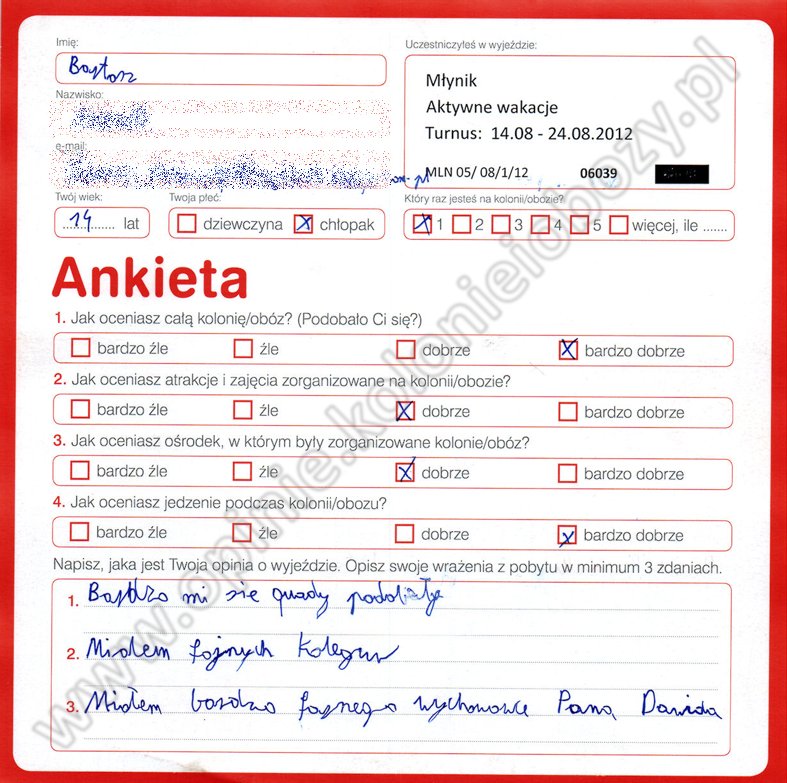 Imię:
Bartosz
Uczestniczyłeś w wyjeździe:
Młynik
Aktywne wakacje
Turnus: 14.08 - 24.08.2012
MLN 05/ 08/1/12 06039
Nazwisko:
e-mail:
Twój wiek:
14 lat
Twoja płeć:
dziewczyna x chłopak
Który raz jesteś na kolonii/obozie?
x 1 2 3 4 5 więcej, ile .......
Ankieta
1. Jak oceniasz całą kolonię/obóz? (Podobało Ci się?)
bardzo źle źle dobrze x bardzo dobrze
2. Jak oceniasz atrakcje i zajęcia zorganizowane na kolonii/obozie?
bardzo źle źle x dobrze bardzo dobrze
3. Jak oceniasz ośrodek, w którym były zorganizowane kolonie/obóz?
bardzo źle źle x dobrze bardzo dobrze
4. Jak oceniasz jedzenie podczas kolonii/obozu?
bardzo źle źle dobrze x bardzo dobrze
Napisz, jaka jest Twoja opinia o wyjeździe. Opisz swoje wrażenia z pobytu w minimum 3 zdaniach.
1. Bardzo mi się quady podobały
2. Miałem fajnych kolegów
3. Miałem bardzo fajnego wychowawce Pana Dawida
www.opinie.kolonieiobozy.pl